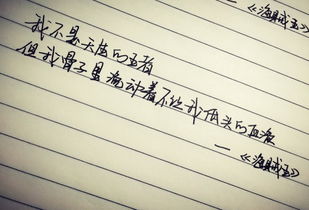 《海贼王》
我不是天生的王者
但我骨子里流动着不让我低头的血液
—《海贼王》